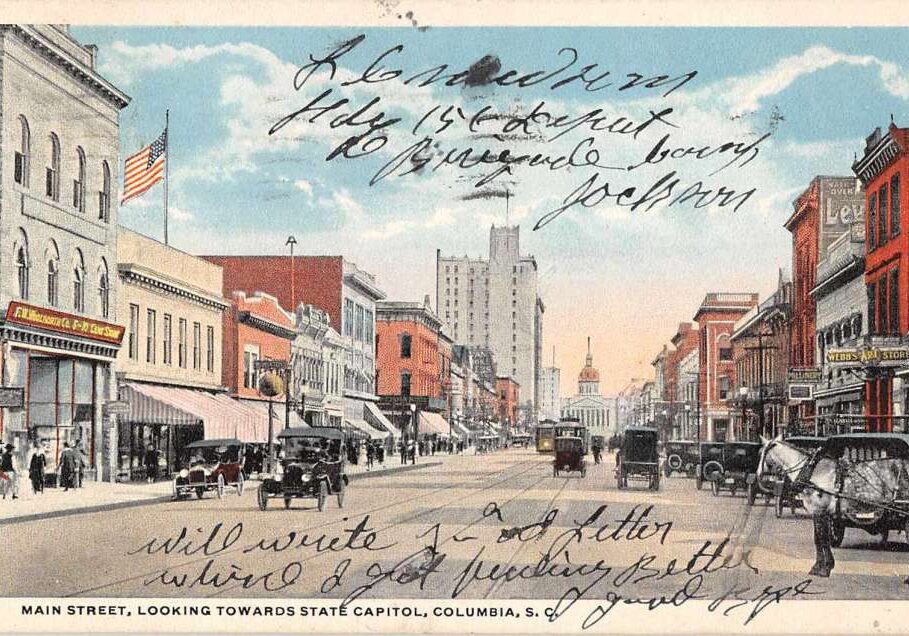 Hdq 156 depot
Brigade Camp
Jackson
LEV
F.W. WOOLWORTH CO. 5-10 CENT STORE
WEBB'S ART STORE
Will write a Letter
when I get feeling Better
good bye
MAIN STREET, LOOKING TOWARDS STATE CAPITOL, COLUMBIA, S. C.